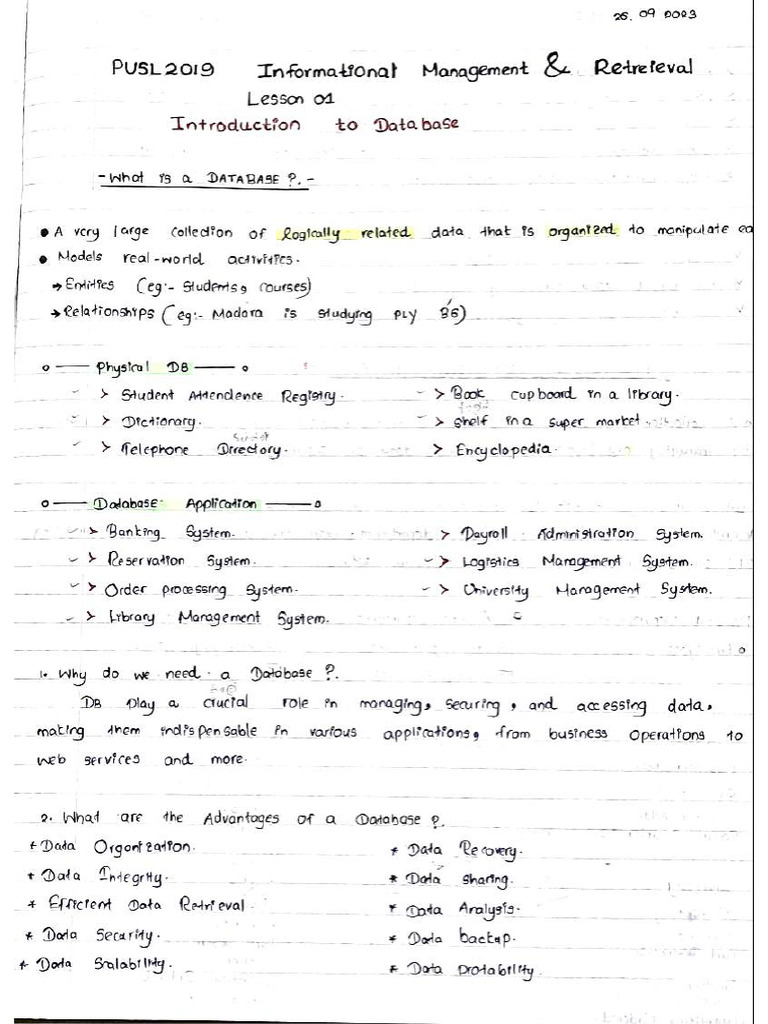 26. 09 2023
PUSL2019 Informational Management & Retreieval
Lesson 01
Introduction to Database
- What is a DATABASE ?. -
• A very large collection of logically related data that is organized to manipulate ea
• Models real-world activities.
→ Entities (eg:- Students, courses)
→ Relationships (eg:- Madara is studying PLY BS)
Physical DB
> Student Attendence Registry.
> Dictionary.
> Telephone Directory.
> Book cupboard in a library.
> shelf in a super market
> Encyclopedia.
Database Application
> Banking System.
> Reservation System.
> Order processing System.
> Library Management System.
> Payroll Administration System.
> Logistics Management System.
> University Management System.
1. Why do we need a Database ?.
DB play a crucial role in managing, securing, and accessing data,
making them indispensable in various applications, from business operations to
web services and more.
2. What are the Advantages of a Database ?.
* Data Organization.
* Data Integrity.
* Efficient Data Retrieval.
* Data Security.
* Data Scalability.
* Data Recovery.
* Data sharing.
* Data Analysis.
* Data backup.
* Data protability.